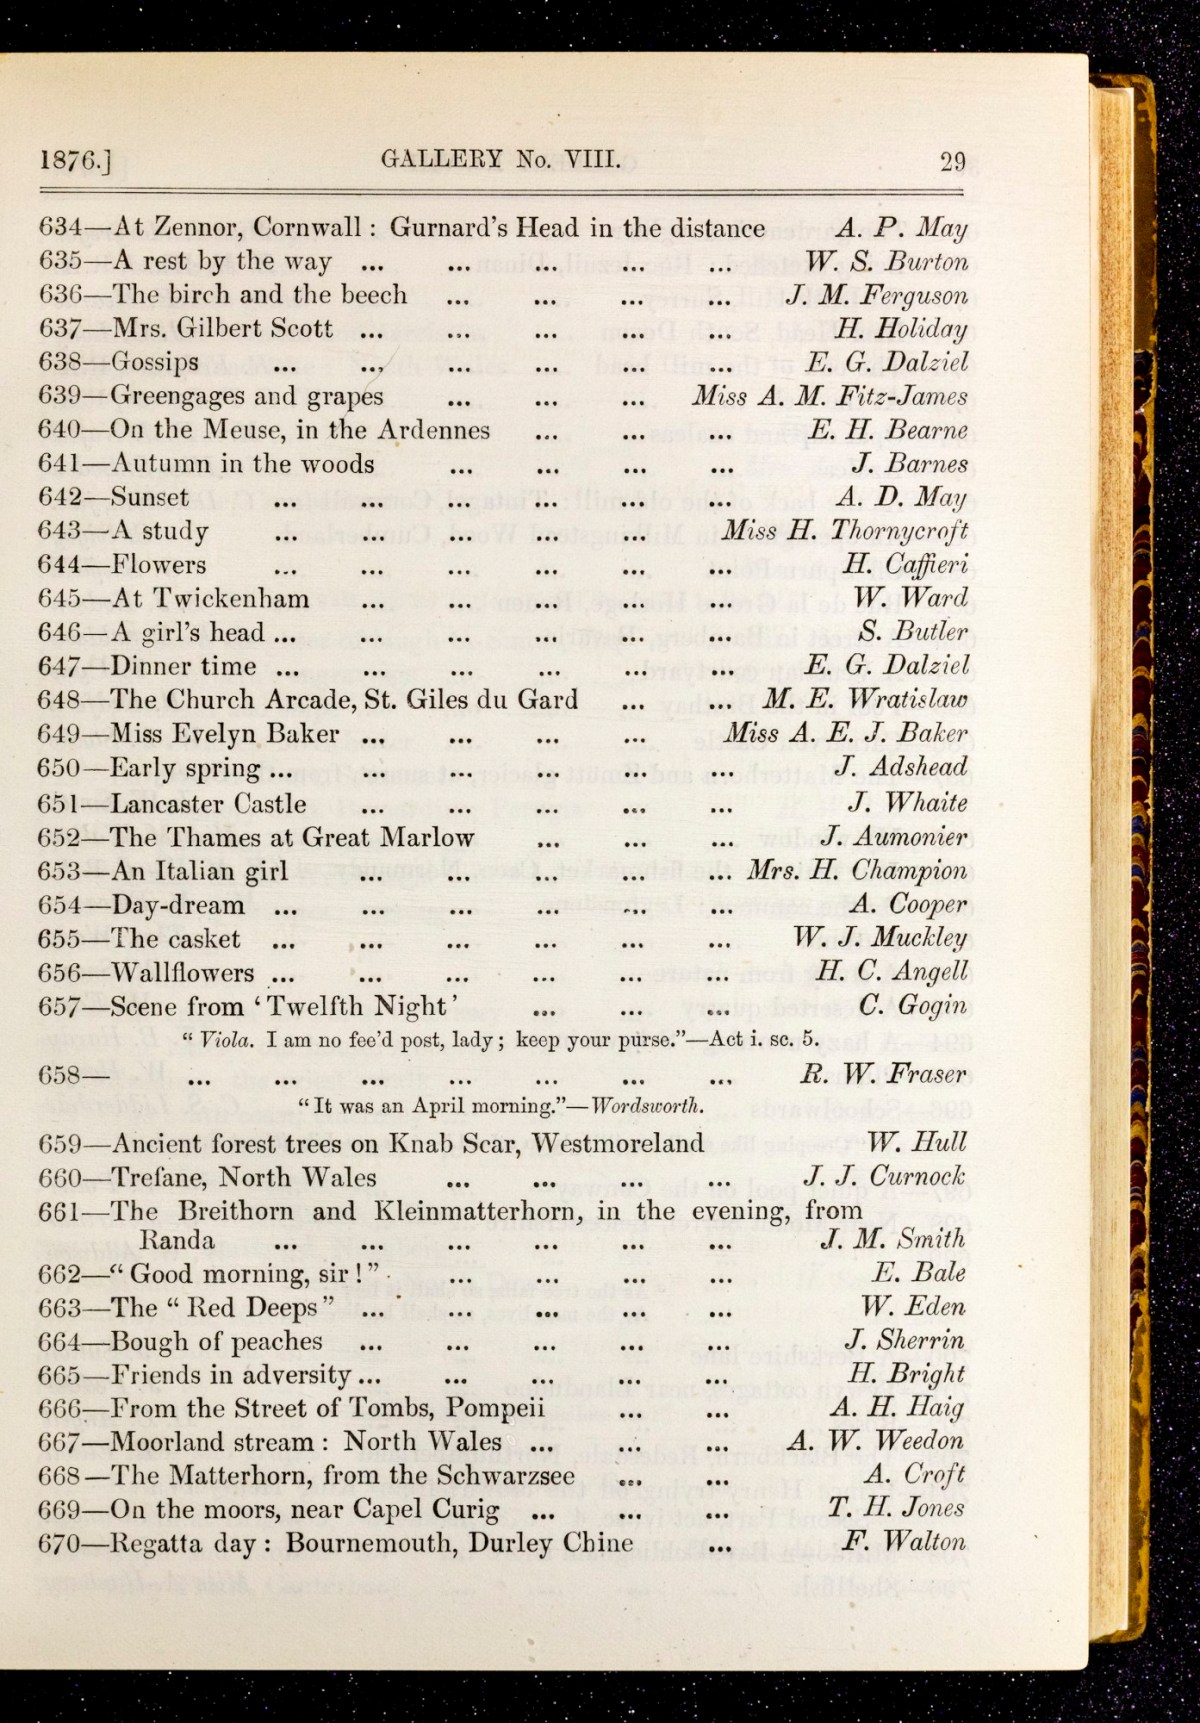 1876.] GALLERY No. VIII. 29
634—At Zennor, Cornwall : Gurnard's Head in the distance A. P. May
635—A rest by the way ... ... ... ... ... W. S. Burton
636—The birch and the beech ... ... ... ... J. M. Ferguson
637—Mrs. Gilbert Scott ... ... ... ... ... H. Holiday
638—Gossips ... ... ... ... ... ... E. G. Dalziel
639—Greengages and grapes ... ... ... Miss A. M. Fitz-James
640—On the Meuse, in the Ardennes ... ... ... E. H. Bearne
641—Autumn in the woods ... ... ... ... J. Barnes
642—Sunset ... ... ... ... ... ... A. D. May
643—A study ... ... ... ... ... Miss H. Thornycroft
644—Flowers ... ... ... ... ... ... H. Caffieri
645—At Twickenham ... ... ... ... ... W. Ward
646—A girl's head ... ... ... ... ... ... S. Butler
647—Dinner time ... ... ... ... ... ... E. G. Dalziel
648—The Church Arcade, St. Giles du Gard ... ... M. E. Wratislaw
649—Miss Evelyn Baker ... ... ... ... Miss A. E. J. Baker
650—Early spring ... ... ... ... ... ... J. Adshead
651—Lancaster Castle ... ... ... ... ... J. Whaite
652—The Thames at Great Marlow ... ... ... J. Aumonier
653—An Italian girl ... ... ... ... ... Mrs. H. Champion
654—Day-dream ... ... ... ... ... ... A. Cooper
655—The casket ... ... ... ... ... ... W. J. Muckley
656—Wallflowers ... ... ... ... ... ... H. C. Angell
657—Scene from ‘Twelfth Night’ ... ... ... C. Gogin
“ Viola. I am no fee'd post, lady ; keep your purse.”—Act i. sc. 5.
658— ... ... ... ... ... ... ... R. W. Fraser
“It was an April morning.”—Wordsworth.
659—Ancient forest trees on Knab Scar, Westmoreland W. Hull
660—Trefane, North Wales ... ... ... ... J. J. Curnock
661—The Breithorn and Kleinmatterhorn, in the evening, from
Randa ... ... ... ... ... ... J. M. Smith
662—“ Good morning, sir ! ” ... ... ... ... E. Bale
663—The “ Red Deeps ” ... ... ... ... ... W. Eden
664—Bough of peaches ... ... ... ... ... J. Sherrin
665—Friends in adversity ... ... ... ... ... H. Bright
666—From the Street of Tombs, Pompeii ... ... A. H. Haig
667—Moorland stream : North Wales ... ... ... A. W. Weedon
668—The Matterhorn, from the Schwarzsee ... ... A. Croft
669—On the moors, near Capel Curig ... ... ... T. H. Jones
670—Regatta day : Bournemouth, Durley Chine ... F. Walton